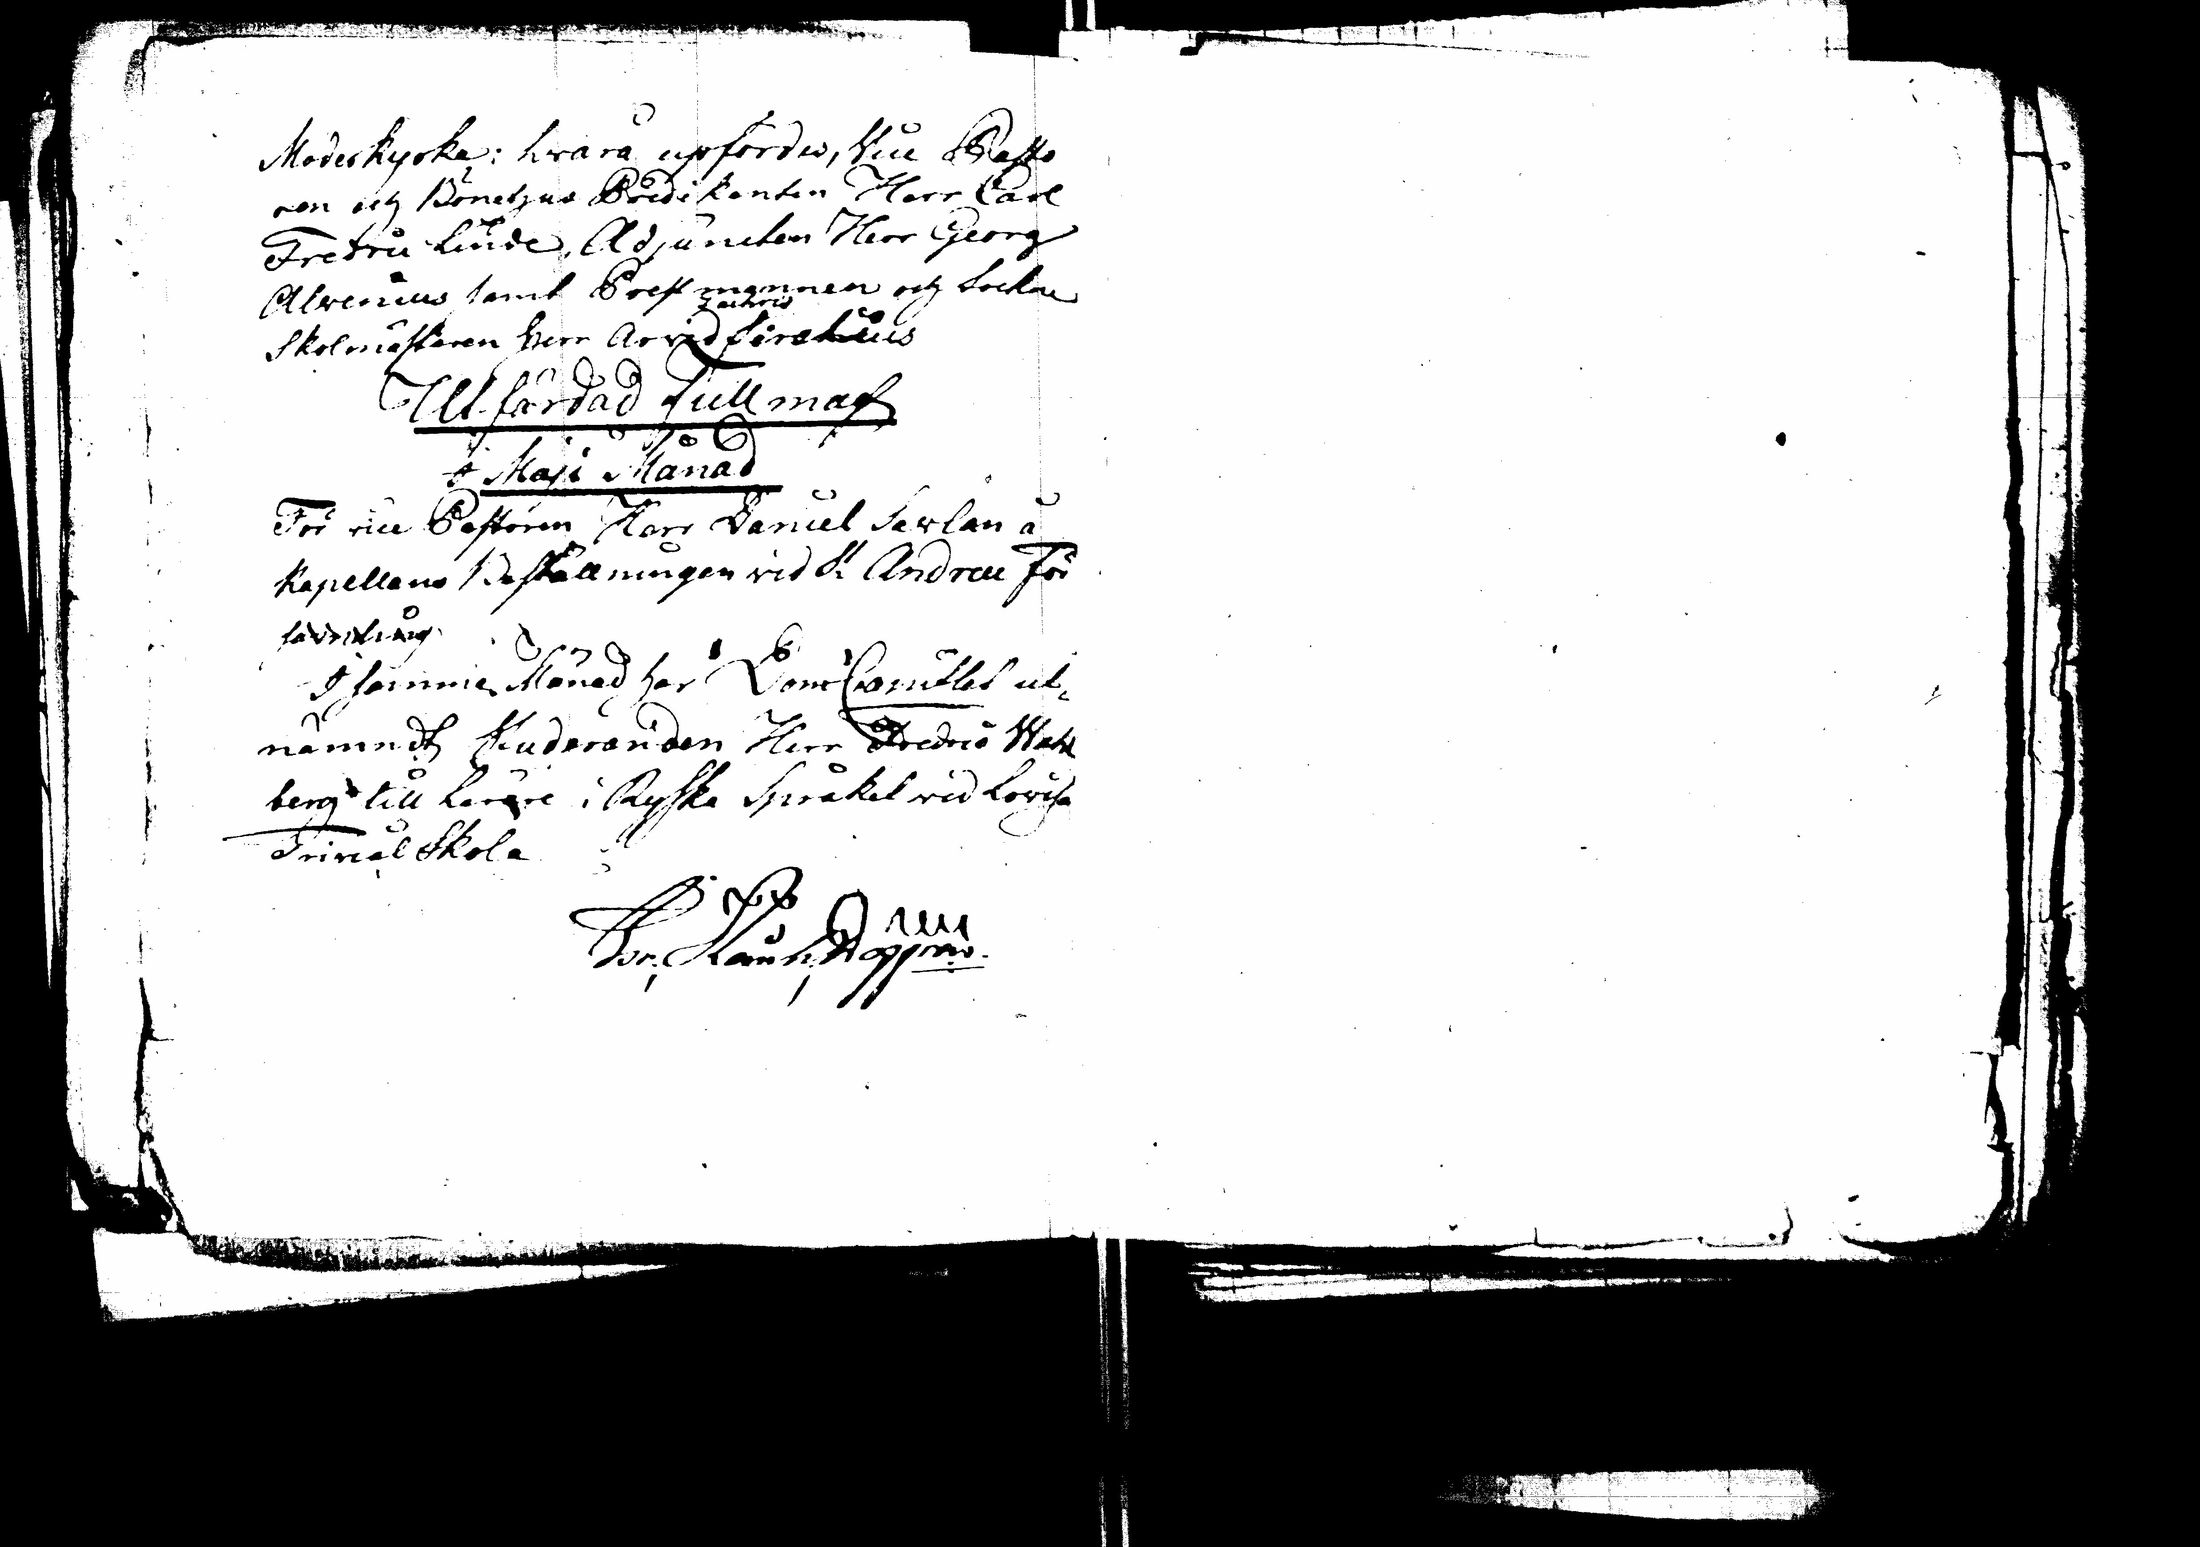 Moderkyrka: hvarå upfördes, Vice Pasto
ren och Bönehus Predikanten Herr Carl
Fredric Linde, Adjuncten Herr Georg
Alvenius samt Prestmannen och Sockne
Skolmästaren Herr Arvid
Utfärdad Fullmagt
I Maji Månad
För vice Pastoren Herr Daniel Savlan å
Kapellans Beställningen vid St Andreæ För
samling
I samma Månad har Dom Capitlet ut-
nämndt Studeranden Herr Fredric Wahl
berg till Lärare i Ryska Språket vid Lovisa
Trivial Skola